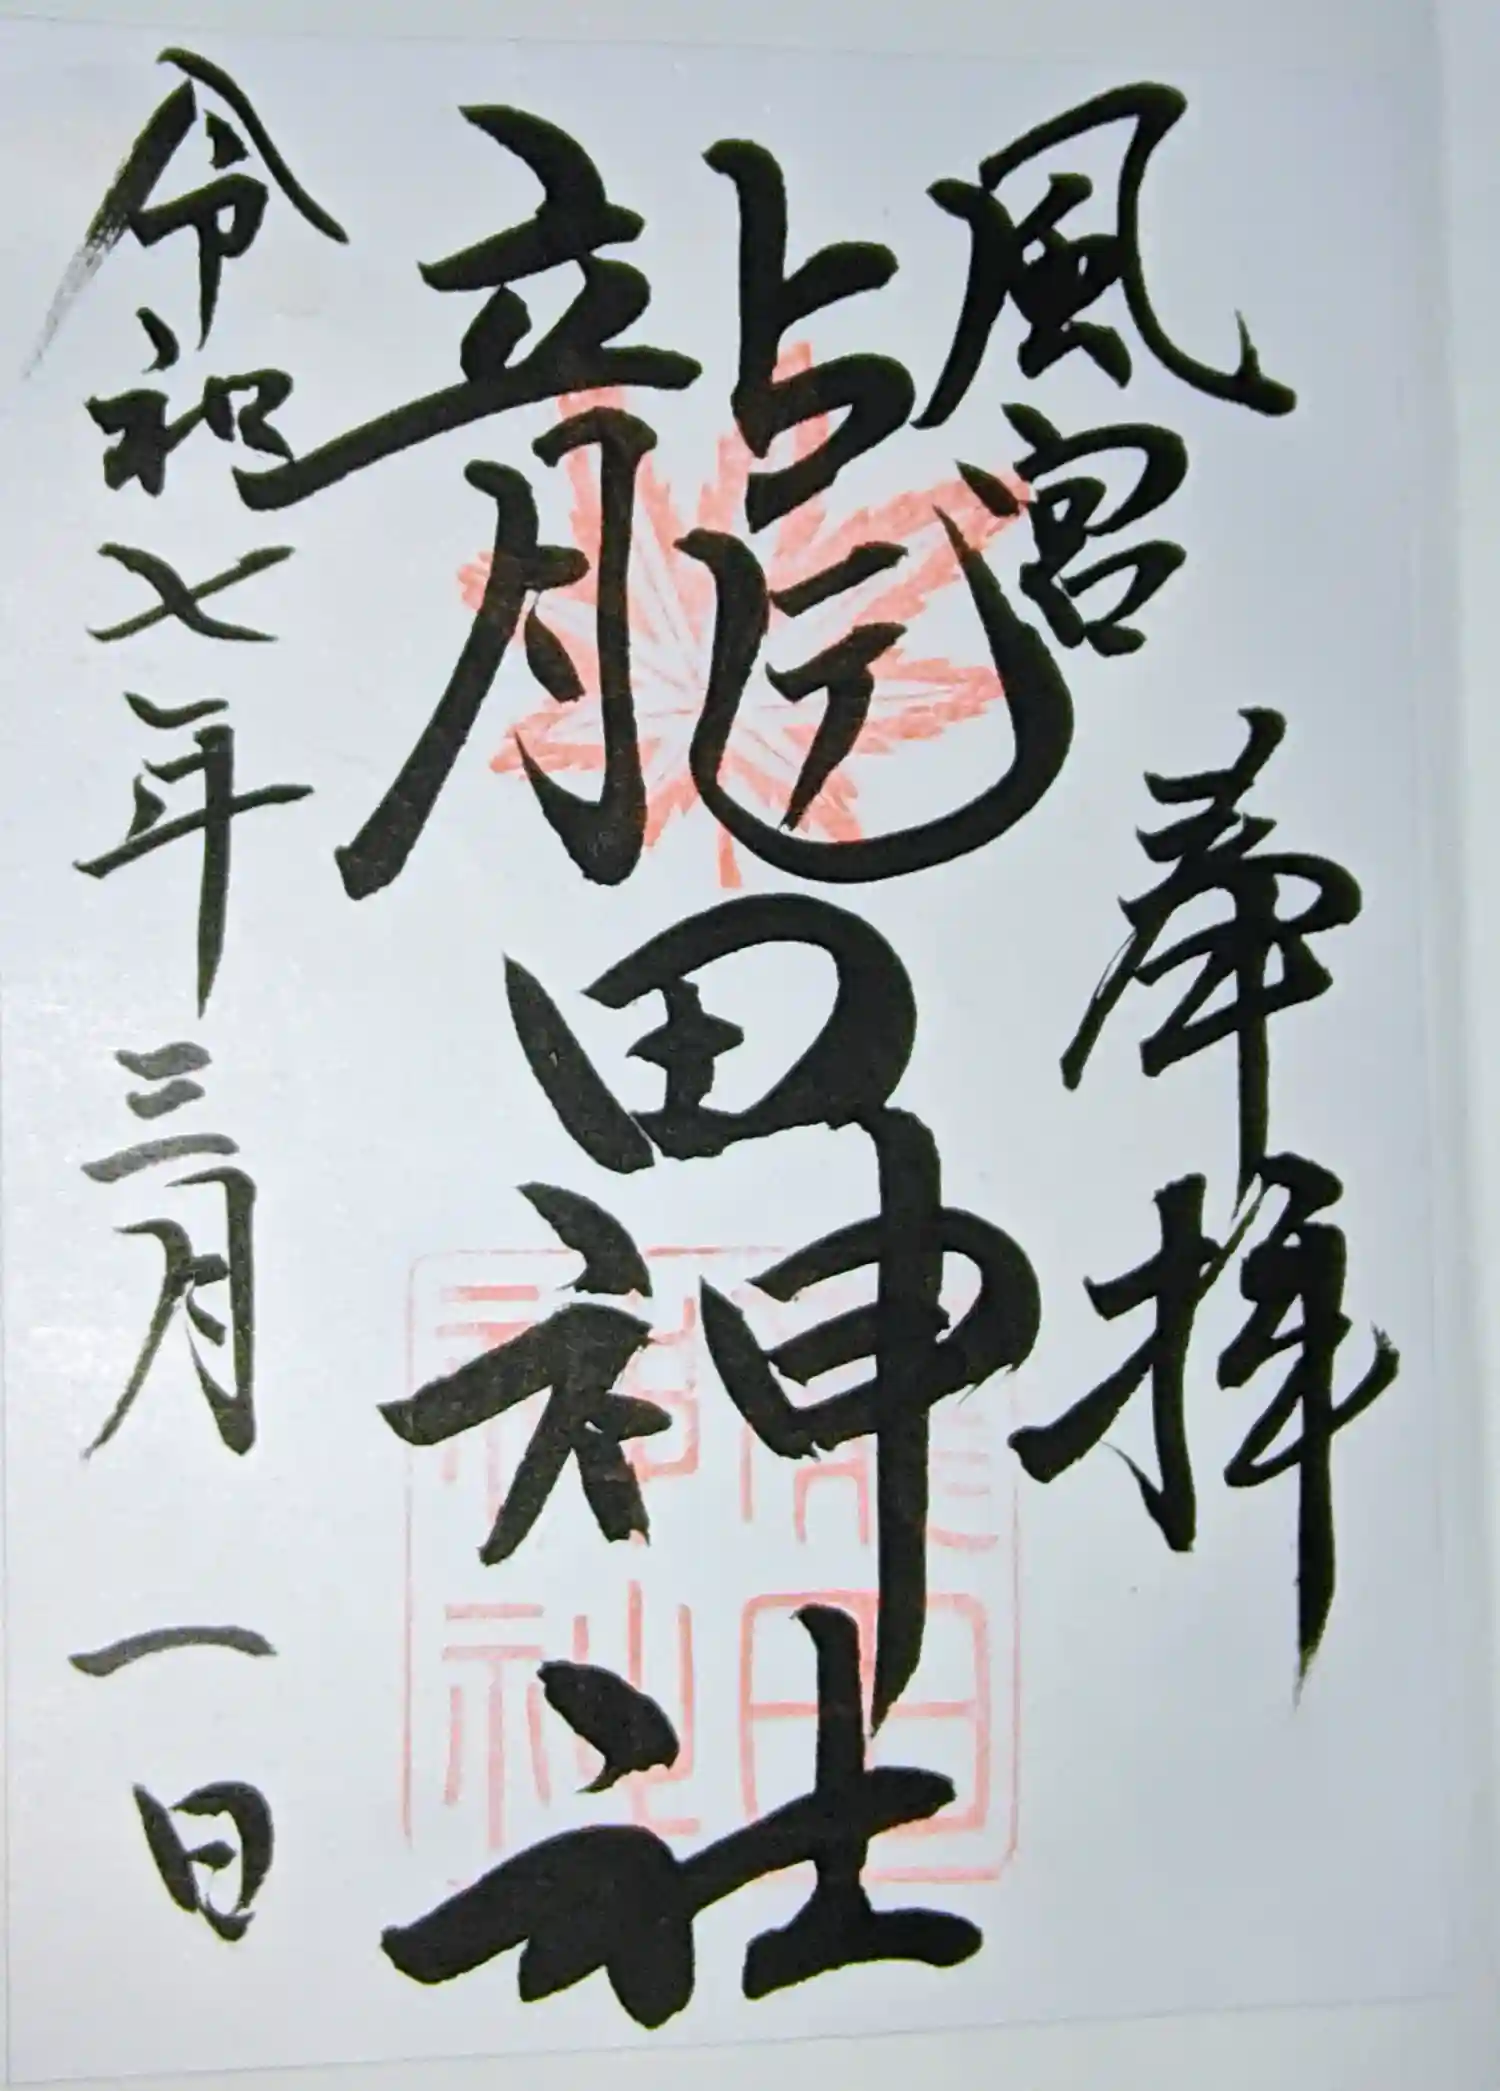 風宮
奉拝
龍田神社
龍田
神社
令和七年三月一日